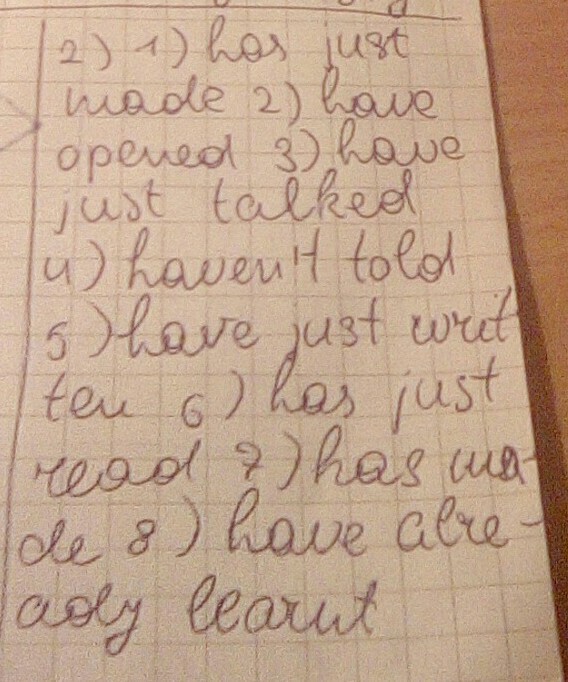 2) 1) has just
made 2) have
opened 3) have
just talked
4) haven't told
5) have just writ
ten 6) has just
read 7) has ma-
de 8) have alre-
ady learnt